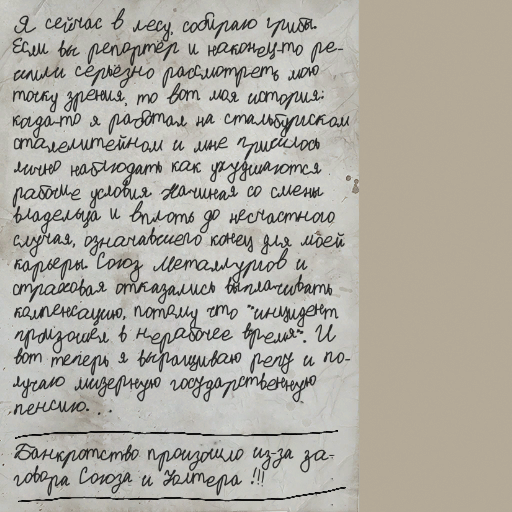 Я сейчас в лесу, собираю грибы.
Если вы репортёр и наконец-то ре-
шили серьёзно рассмотреть мою
точку зрения, то вот моя история:
когда-то я работал на стальбургском
сталелитейном и мне пришлось
лично наблюдать как ухудшаются
рабочие условия. Начиная со смены
владельца и вплоть до несчастного
случая, означавшего конец для моей
карьеры. Союз Металлургов и
страховая отказались выплачивать
компенсацию, потому что "инцидент
произошёл в нерабочее время". И
вот теперь я выращиваю репу и по-
лучаю мизерную государственную
пенсию...
Банкротство произошло из-за за-
говора Союза и Уолтера!!!